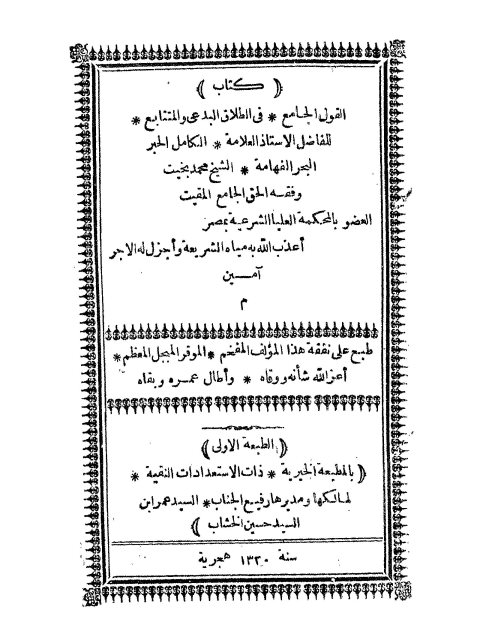 ﴿ كتاب ﴾
القول الجامع * فى الطلاق البدعى والمتتابع *
للفاضل الاستاذ العلامة * الكامل الحبر
البحر الفهامة * الشيخ محمد بخيت
وفقه الحق الجامع المقيت
العضو بالمحكمة العليا الشرعية بمصر
أعذب الله به مياه الشريعة وأجزل له الاجر
آمين
م
طبع على نفقة هذا المؤلف المفخم * الموقر المبجل المعظم *
أعز الله شأنه ووقاه * وأطال عمره وبقاه
﴿ الطبعة الاولى ﴾
﴿ بالمطبعة الخيرية * ذات الاستعدادات النقية *
لمالكها ومديرها رفيع الجناب * السيد عمر ابن
السيد حسين الخشاب ﴾
سنة ١٣٢٠ هجرية